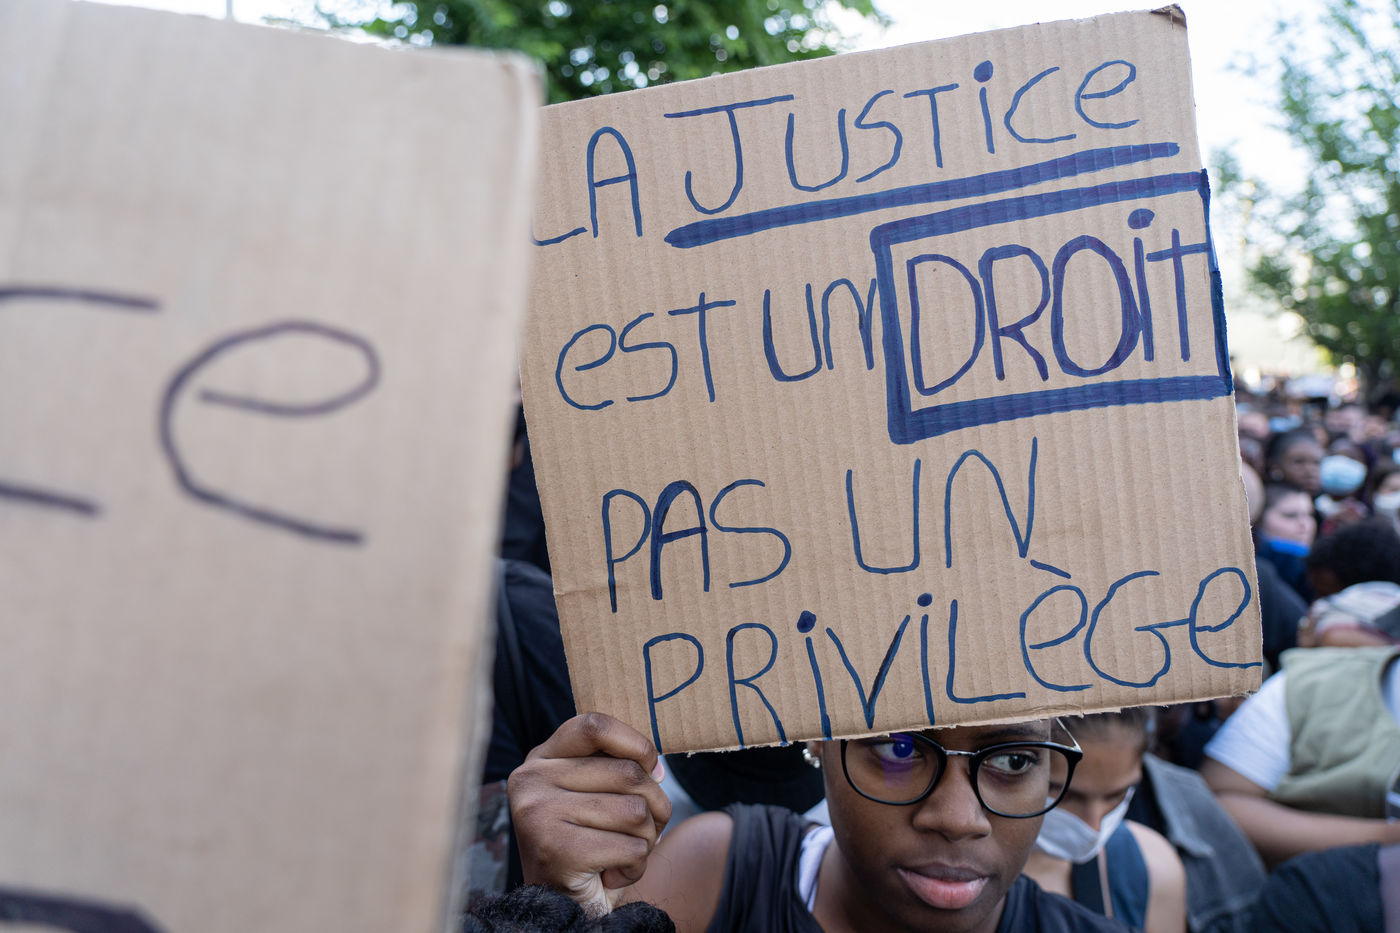 LA JUSTiCe
eST UN DROiT
PAS UN
PRiViLèGe